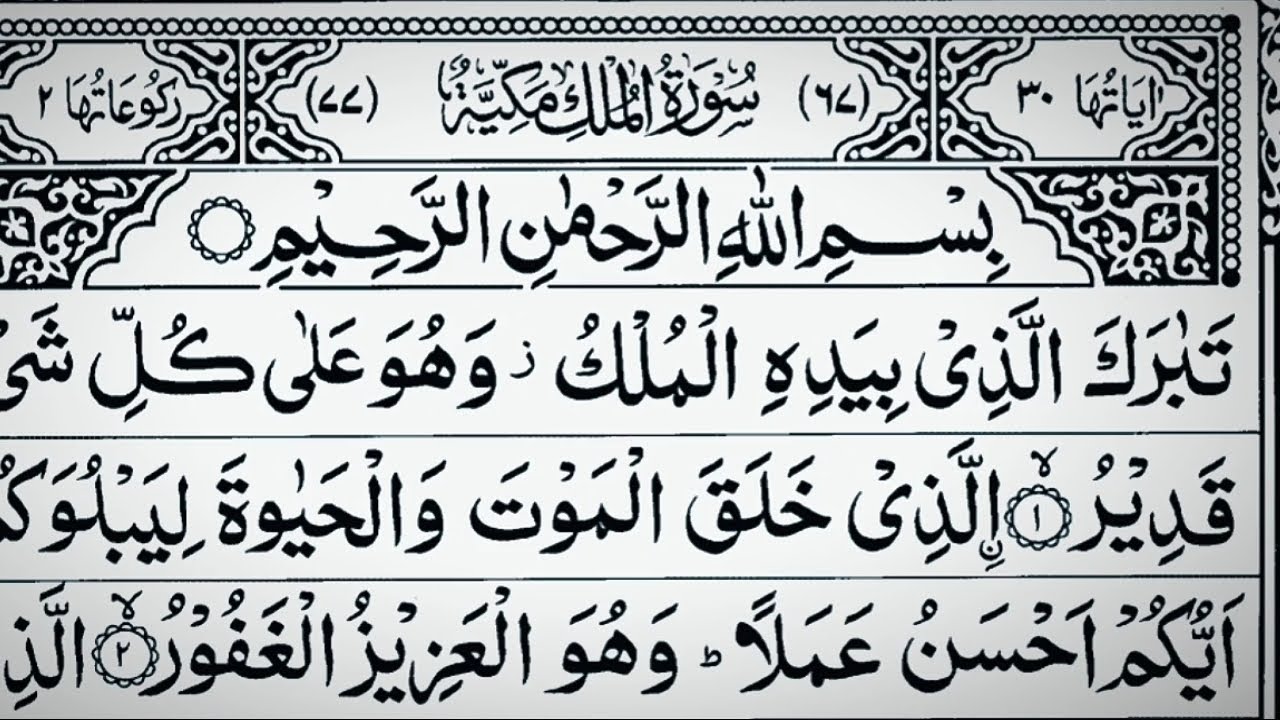 اٰيَاتُهَا ٣٠ (٦٧) سُوْرَةُ الْمُلْكِ مَكِّيَّةٌ (٧٧) رُكُوْعَاتُهَا ٢
بِسْمِ اللّٰهِ الرَّحْمٰنِ الرَّحِيْمِ
تَبٰرَكَ الَّذِىْ بِيَدِهِ الْمُلْكُ ز وَهُوَ عَلٰى كُلِّ شَىْ
قَدِيْرُ ۙ ﴿١﴾ اِۨلَّذِىْ خَلَقَ الْمَوْتَ وَالْحَيٰوةَ لِيَبْلُوَكُمْ
اَيُّكُمْ اَحْسَنُ عَمَلًا ؕ وَهُوَ الْعَزِيْزُ الْغَفُوْرُ ۙ ﴿٢﴾ الَّذِ